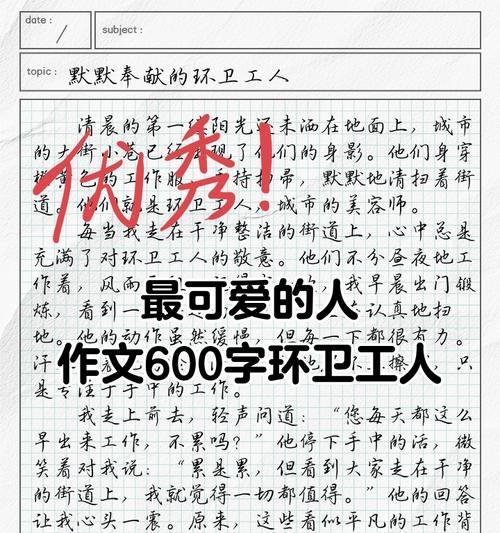 date :
subject :
topic : 默默奉献的环卫工人
清晨的第一缕阳光还未洒在地面上，城市
的大街小巷已经出现了他们的身影。他们身穿
橘黄色的工作服，手持扫帚，默默地清扫着街
道。他们就是环卫工人，城市的美容师。
优秀！
每当我走在干净整洁的街道上，心中总是
充满了对环卫工人的敬意。他们不分昼夜地工
作着，风雨 我早晨出门锻
炼，看到一 在认真地扫
地。他的动作虽然缓慢，但每一下都很有力。
最可爱的人
汗 擦 只
作文600字环卫工人
是专注于手中的工作。
我走上前去，轻声问道：“您每天都这么
早出来工作，不累吗？”他停下手中的活，微
笑着对我说：“累是累，但看到大家走在干净
的街道上，我就觉得一切都值得。”他的回答
让我心头一震。原来，这些看似平凡的工作背